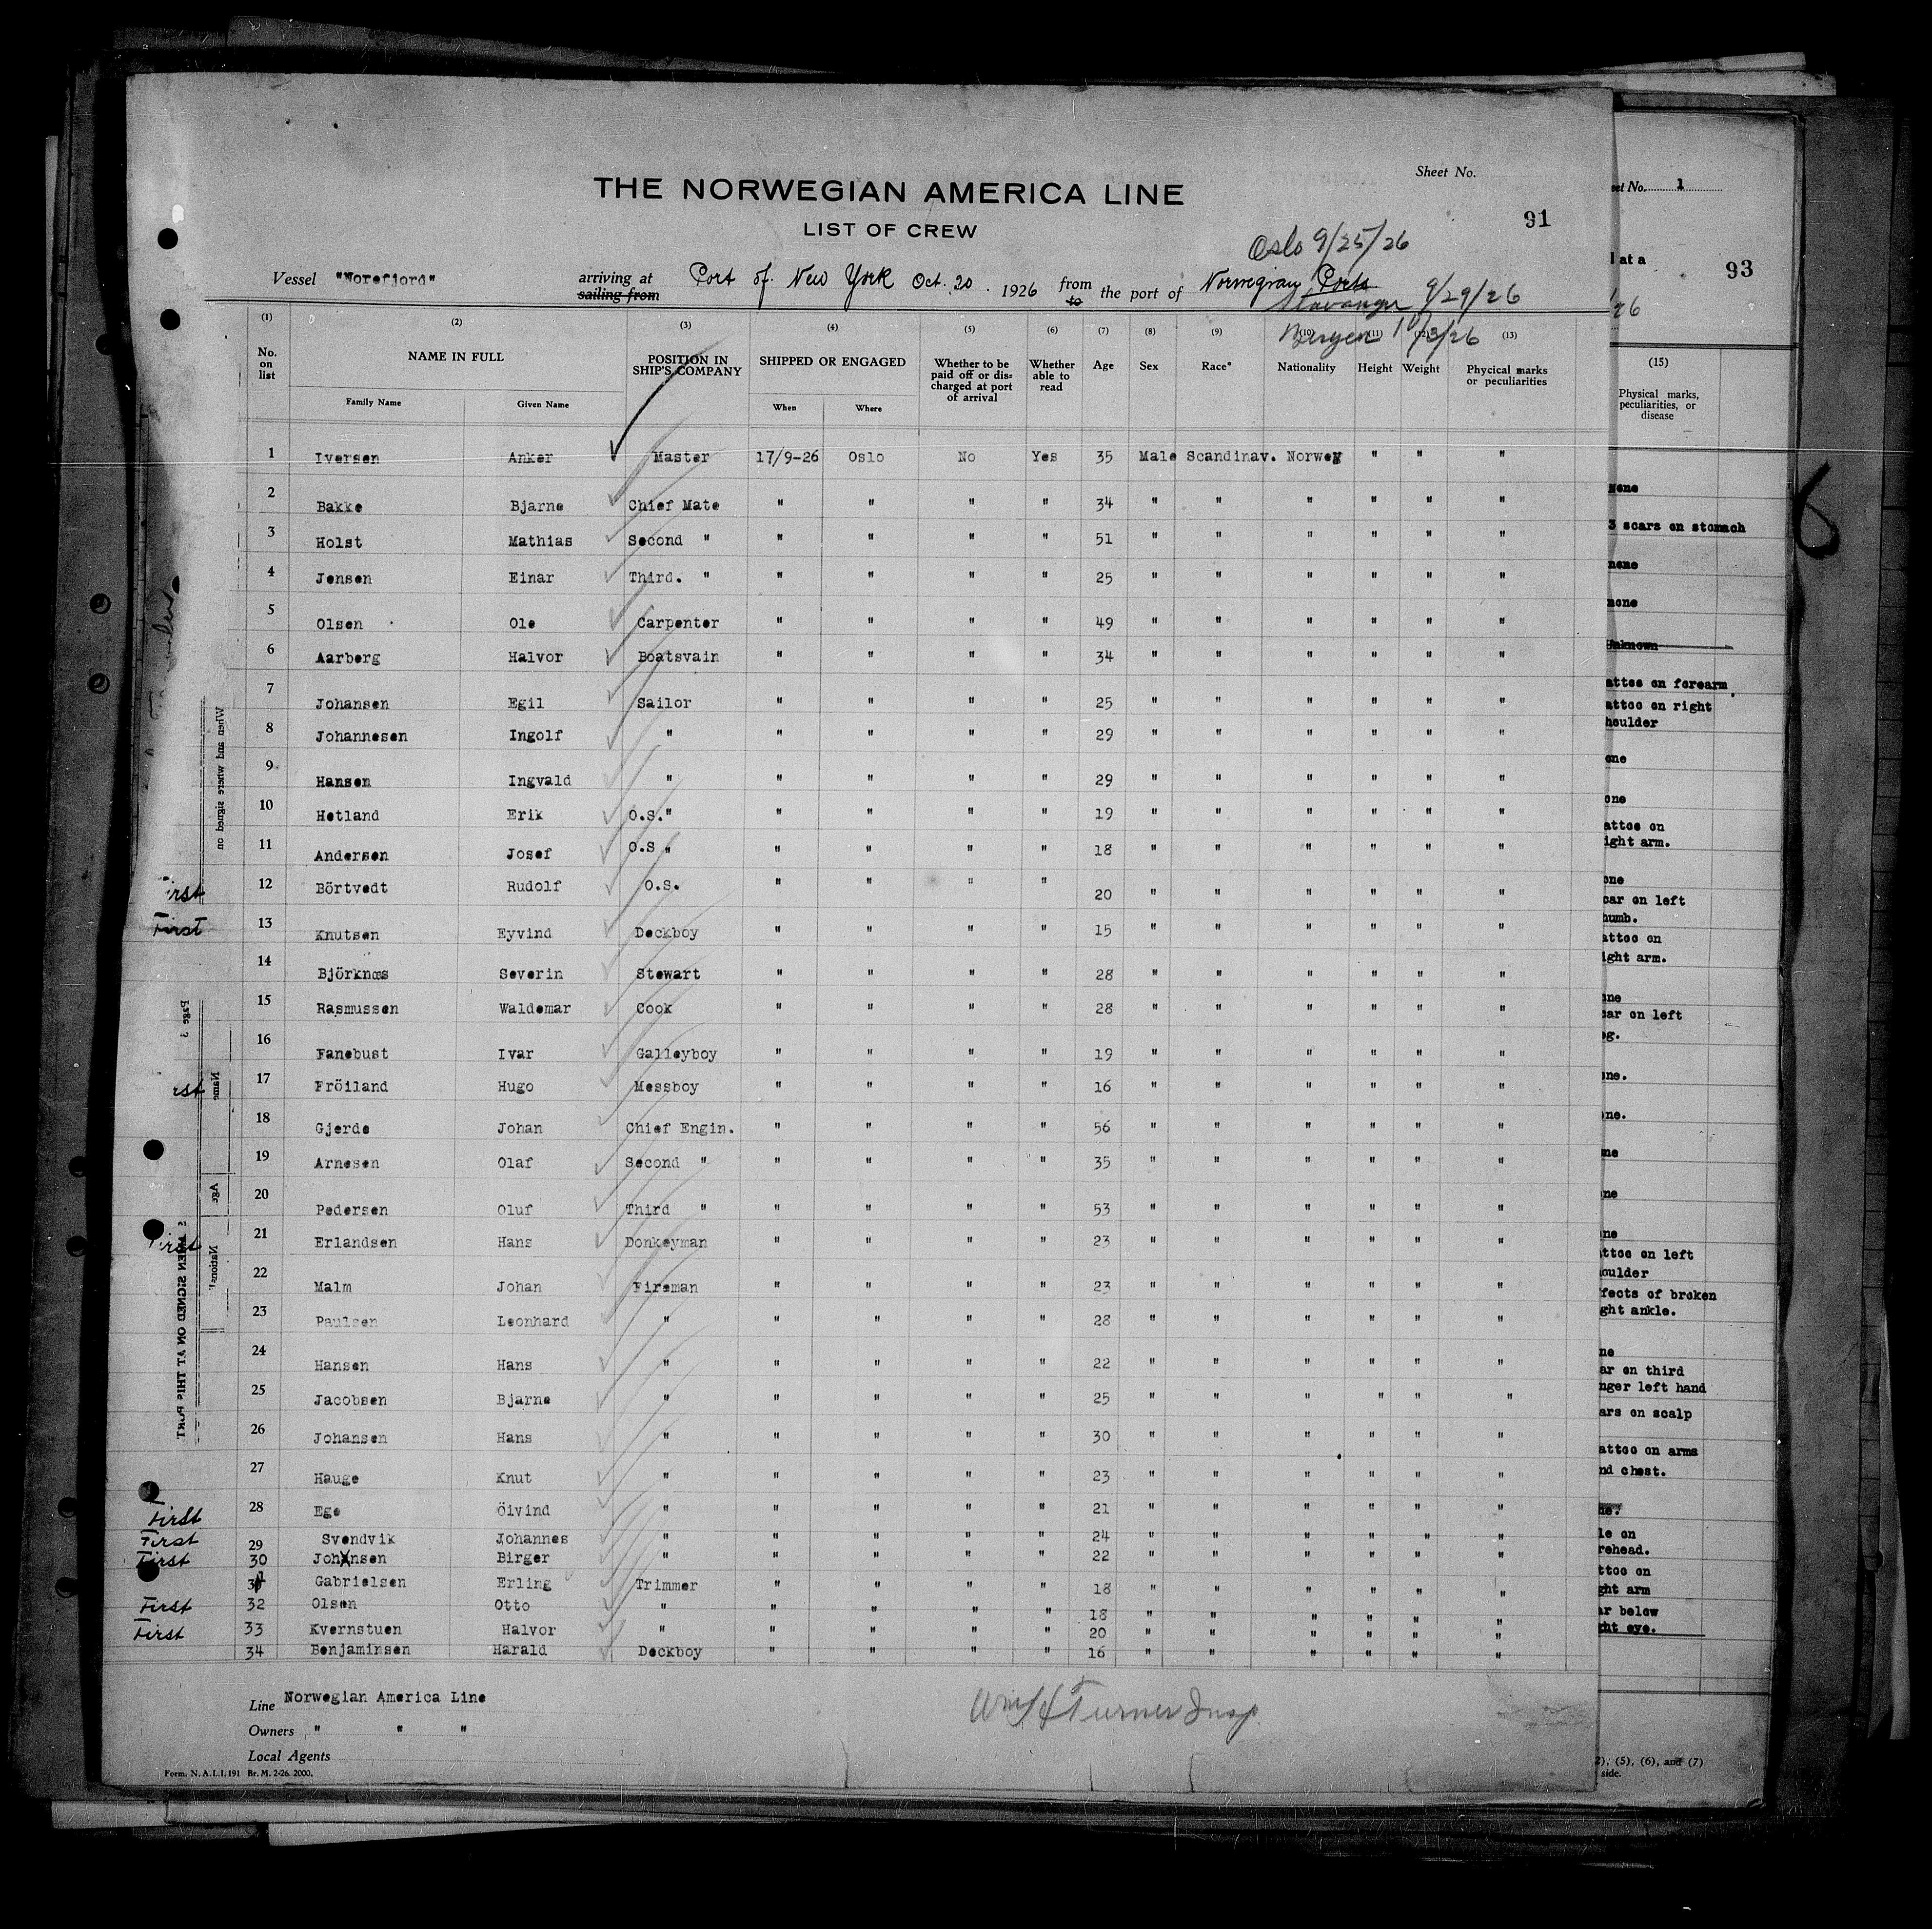 Sheet No.
THE NORWEGIAN AMERICA LINE
91
LIST OF CREW
Oslo 9/25/26
Vessel "Norefjord" arriving at sailing from Port of New York Oct. 20. 1926 from to the port of Norwegian Ports
Stavanger 9/29/26
Bergen 10/3/26
(1) (2) (3) (4) (5) (6) (7) (8) (9) (10) (11) (12) (13)
No. on list NAME IN FULL POSITION IN SHIP'S COMPANY SHIPPED OR ENGAGED Whether to be paid off or dis-charged at port of arrival Whether able to read Age Sex Race* Nationality Height Weight Phycical marks or peculiarities
Family Name Given Name When Where
1 Iversen Anker Master 17/9-26 Oslo No Yes 35 Male Scandinav. Norweg " " "
2 Bakke Bjarne Chief Mate " " " " 34 " " " " " "
3 Holst Mathias Second " " " " " 51 " " " " " "
4 Jensen Einar Third. " " " " " 25 " " " " " "
5 Olsen Ole Carpenter " " " " 49 " " " " " "
6 Aarberg Halvor Boatsvain " " " " 34 " " " " " "
7 Johansen Egil Sailor " " " " 25 " " " " " "
8 Johannesen Ingolf " " " " " 29 " " " " " "
9 Hansen Ingvald " " " " " 29 " " " " " "
10 Hetland Erik O.S." " " " " 19 " " " " " "
11 Andersen Josef O.S " " " " " 18 " " " " " "
First 12 Börtvedt Rudolf O.S. " " " " 20 " " " " " "
First 13 Knutsen Eyvind Deckboy " " " " 15 " " " " " "
14 Björknæs Severin Stewart " " " " 28 " " " " " "
15 Rasmussen Waldemar Cook " " " " 28 " " " " " "
16 Fanebust Ivar Galleyboy " " " " 19 " " " " " "
17 Fröiland Hugo Messboy " " " " 16 " " " " " "
18 Gjerde Johan Chief Engin. " " " " 56 " " " " " "
19 Arnesen Olaf Second " " " " " 35 " " " " " "
20 Pedersen Oluf Third " " " " " 53 " " " " " "
21 Erlandsen Hans Donkeyman " " " " 23 " " " " " "
22 Malm Johan Fireman " " " " 23 " " " " " "
23 Paulsen Leonhard " " " " " 28 " " " " " "
24 Hansen Hans " " " " " 22 " " " " " "
25 Jacobsen Bjarne " " " " " 25 " " " " " "
26 Johansen Hans " " " " " 30 " " " " " "
27 Hauge Knut " " " " " 23 " " " " " "
First 28 Ege Öivind " " " " " 21 " " " " " "
First 29 Svendvik Johannes " " " " " 24 " " " " " "
First 30 Johnsen Birger " " " " " 22 " " " " " "
31 Gabrielsen Erling Trimmer " " " " 18 " " " " " "
First 32 Olsen Otto " " " " " 18 " " " " " "
First 33 Kvernstuen Halvor " " " " " 20 " " " " " "
34 Benjaminsen Harald Deckboy " " " " 16 " " " " " "
Line Norwegian America Line
Owners " " "
Local Agents
Wm H Turner Insp
Form. N. A. L. I. 191 Br. M. 2-26. 2000.
When and where signed on
Page 2
Name
Age
WHEN SIGNED ON AT THIS PORT
No. 1
at a
93
(15)
Physical marks, peculiarities, or disease
None
3 scars on stomach
none
none
Unknown
attoo on forearm
attoo on right
houlder
one
one
attoo on
ight arm.
one
car on left
humb.
attoo on
ight arm.
car on left
attoo on left
oulder
ffects of broken
ght ankle.
ar on third
nger left hand
ars on scalp
attoo on arms
nd chest.
le on
rehead.
ttoo on
ght arm
ar below
ght eye.
(5), (6), and (7)
side.
6